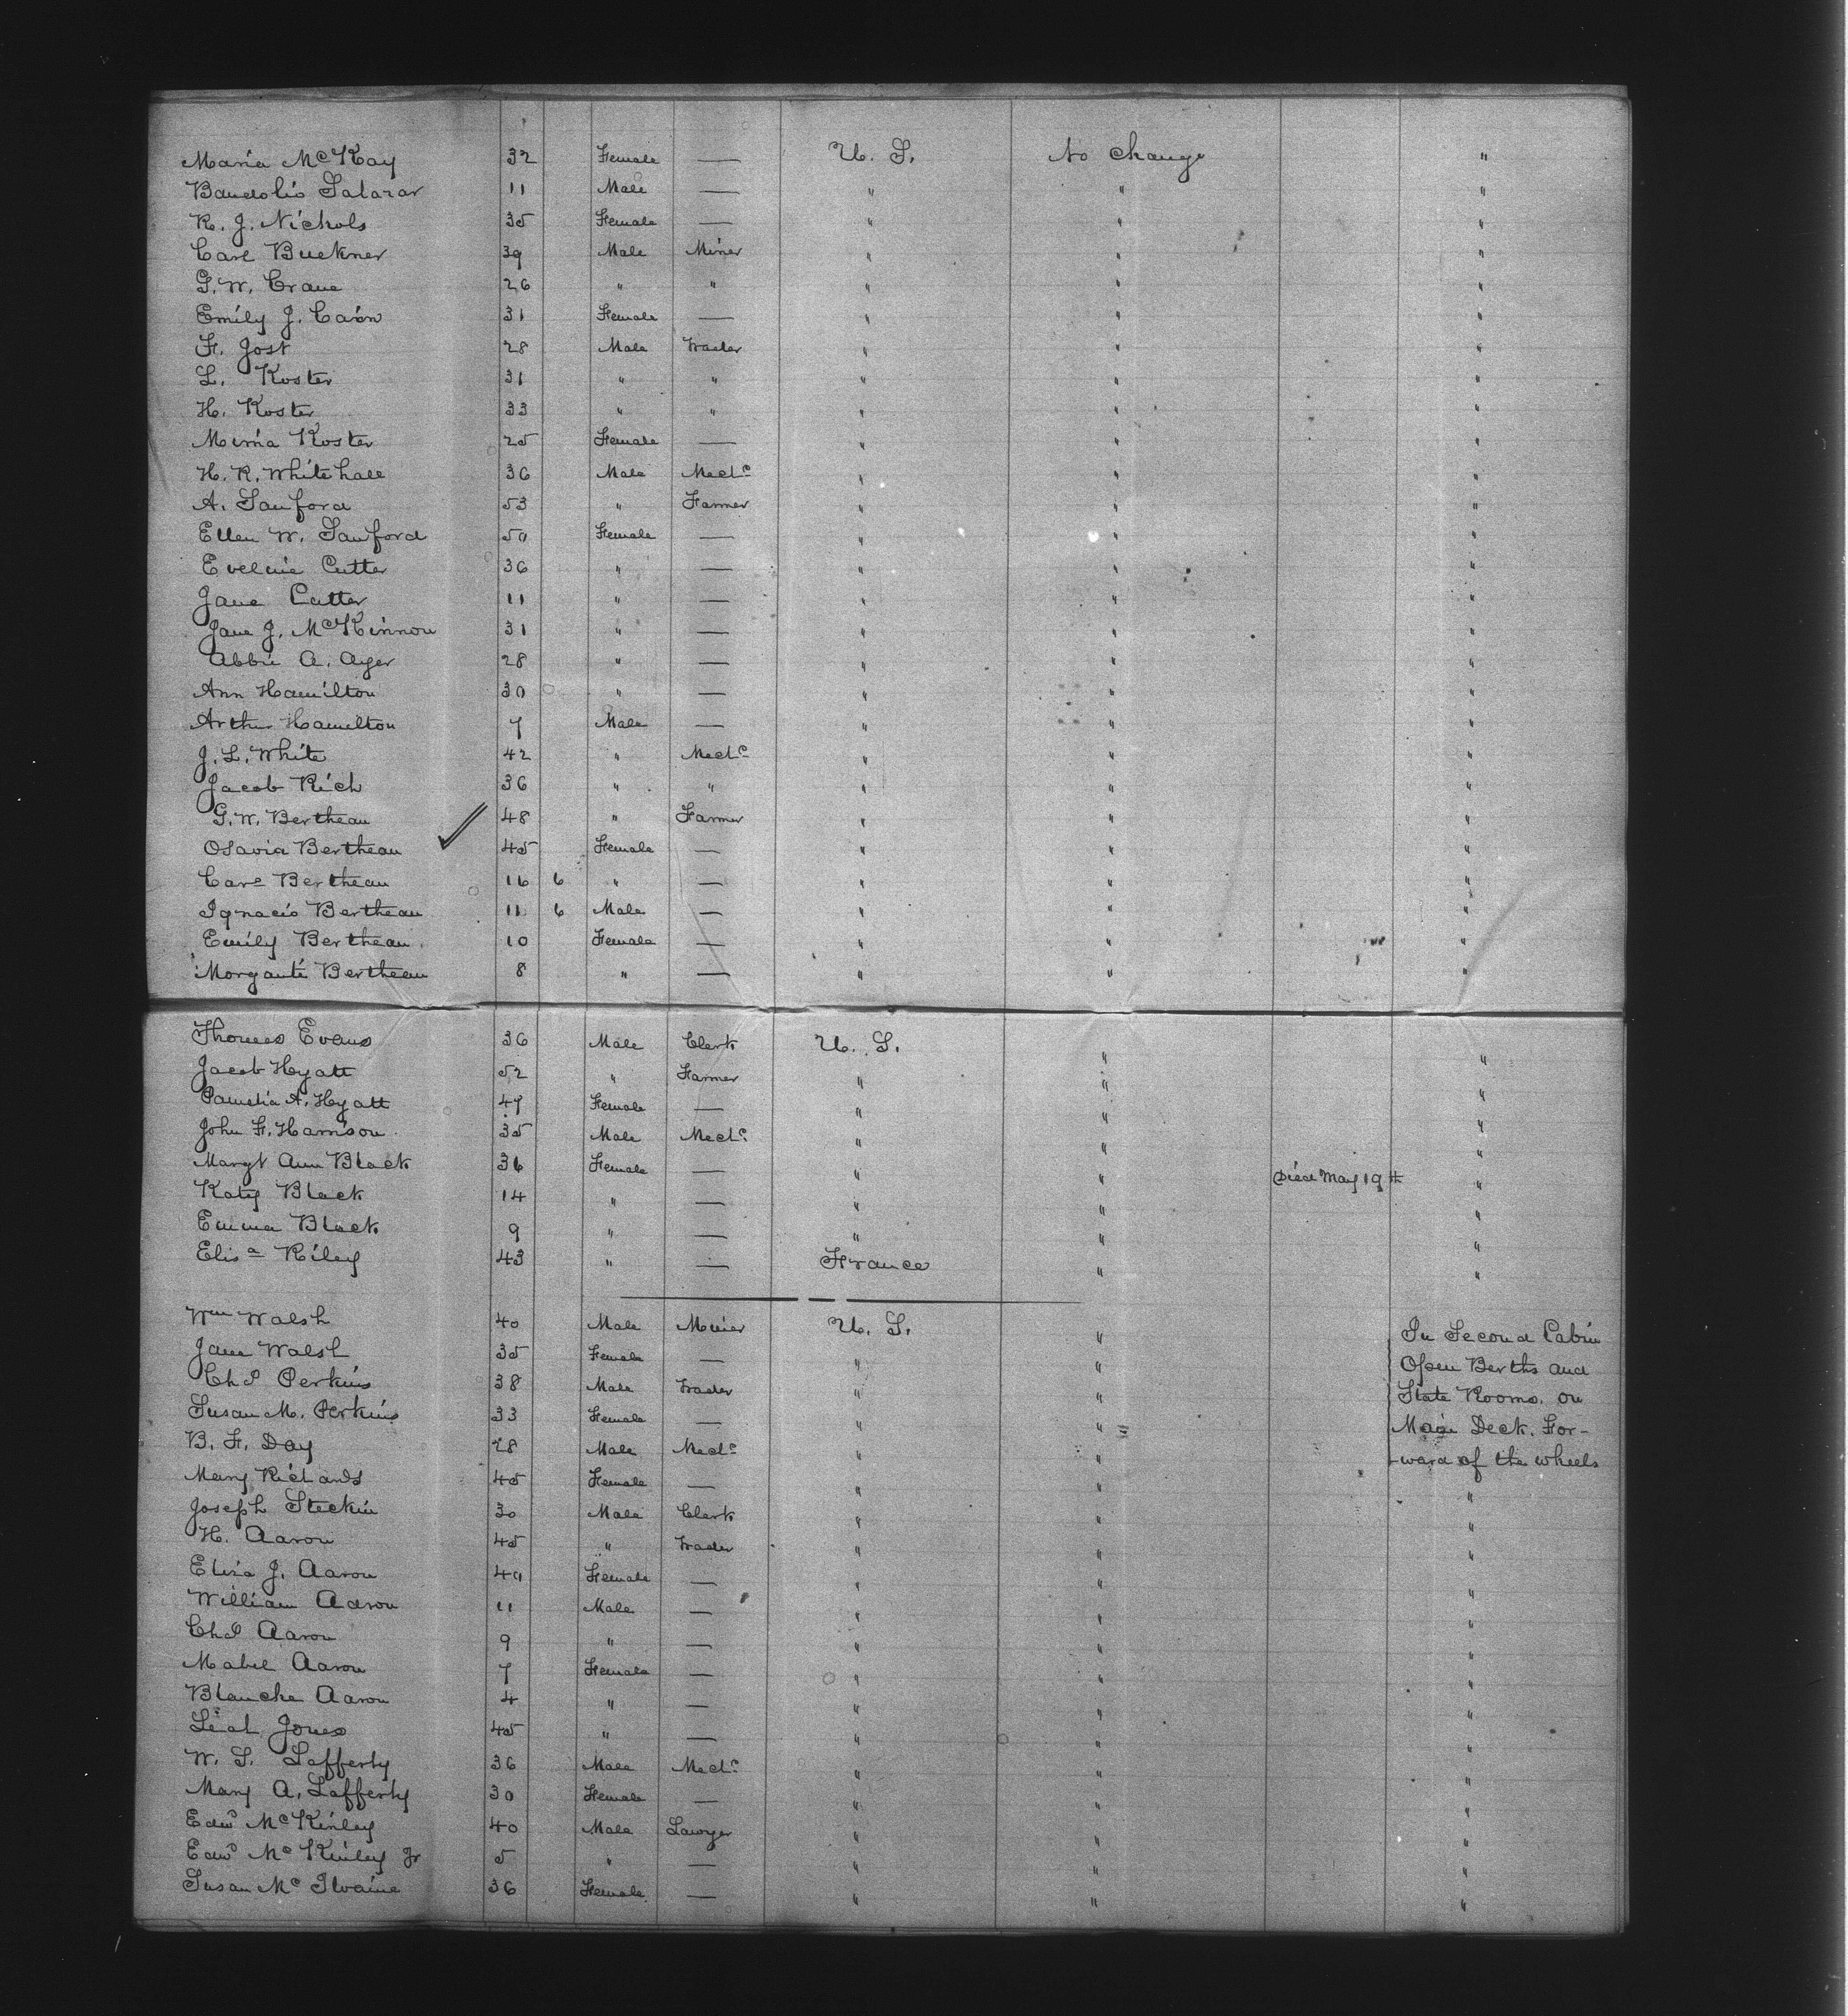 Maria McKay 32 Female — U. S. No change "
Baudolio Salazar 11 Male — " " "
R. J. Nichols 35 Female — " " "
Carl Buckner 39 Male Miner " " "
G. W. Crane 26 " " " " "
Emily J. Cairn 31 Female — " " "
F. Jost 28 Male Trader " " "
L. Koster 31 " " " " "
H. Koster 33 " " " " "
Mirna Koster 25 Female — " " "
H. R. Whitehall 36 Male Mechc " " "
A. Sanford 53 " Farmer " " "
Ellen W. Sanford 50 Female — " " "
Eveline Cutter 36 " — " " "
Jane Cutter 11 " — " " "
Jane J. McKinnon 31 " — " " "
Abbie A. Ayer 28 " — " " "
Ann Hamilton 30 " — " " "
Arthur Hamilton 7 Male — " " "
J. L. White 42 " Mechc " " "
Jacob Rich 36 " " " " "
G. W. Bertheau 48 " Farmer " " "
Osavia Bertheau 45 Female — " " "
Care Bertheau 16 6 " — " " "
Ignacio Bertheau 11 6 Male — " " "
Emily Bertheau 10 Female — " " "
Morganti Bertheau 8 " — " " "
Thomas Evans 36 Male Clerk U. S. " "
Jacob Hyatt 52 " Farmer " " "
Pamelia A. Hyatt 47 Female — " " "
John F. Harrison 35 Male Mechc " " "
Margt Ann Black 36 Female — " " Died May 19th "
Katy Black 14 " — " " "
Emma Black 9 " — " " "
Elisa Riley 43 " — France " "
Wm Walsh 40 Male Miner U. S. " In Second Cabin
Jane Walsh 35 Female — " " Open Berths and
Chs Perkins 38 Male Trader " " State Rooms. on
Susan M. Perkins 33 Female — " " Main Deck. For-
B. F. Day 28 Male Mechc " " ward of the wheels
Mary Richards 45 Female — " " "
Joseph Steckin 30 Male Clerk " " "
H. Aaron 45 " Trader " " "
Eliza J. Aaron 40 Female — " " "
William Aaron 11 Male — " " "
Chs Aaron 9 " — " " "
Mabel Aaron 7 Female — " " "
Blanche Aaron 4 " — " " "
Leah Jones 45 " — " " "
W. S. Lafferty 36 Male Mechc " " "
Mary A. Lafferty 30 Female — " " "
Edwd McKinley 40 Male Lawyer " " "
Edwd McKinley Jr 5 " — " " "
Susan McIlvaine 36 Female — " " "